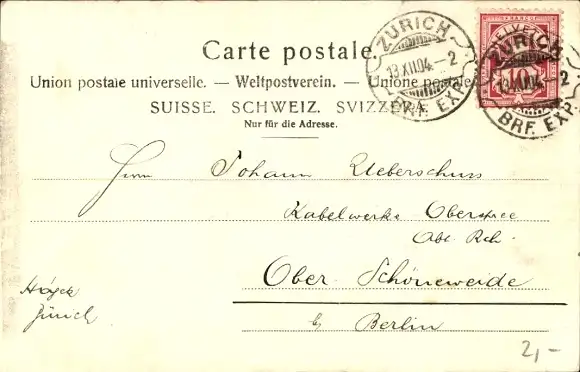 Carte postale.
Union postale universelle. — Weltpostverein. — Unione postale
SUISSE. SCHWEIZ. SVIZZERA.
Nur für die Adresse.
ZÜRICH
13.XII.04.-2
BRF. EXP.
FRANCO
HELVETIA
10
ZÜRICH
13.XII.04.-2
BRF. EXP.
Herrn Johann Ueberschuss
Kabelwerke Oberspree
Abt.
Ober. Schöneweide
b/ Berlin
Zürich
2,-